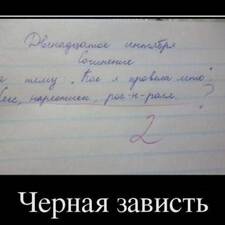 Двенадцатое сентября
Сочинение
на тему „Как я провела лето“.
Секс, наркотики, рок-н-ролл.
?
2
Черная зависть